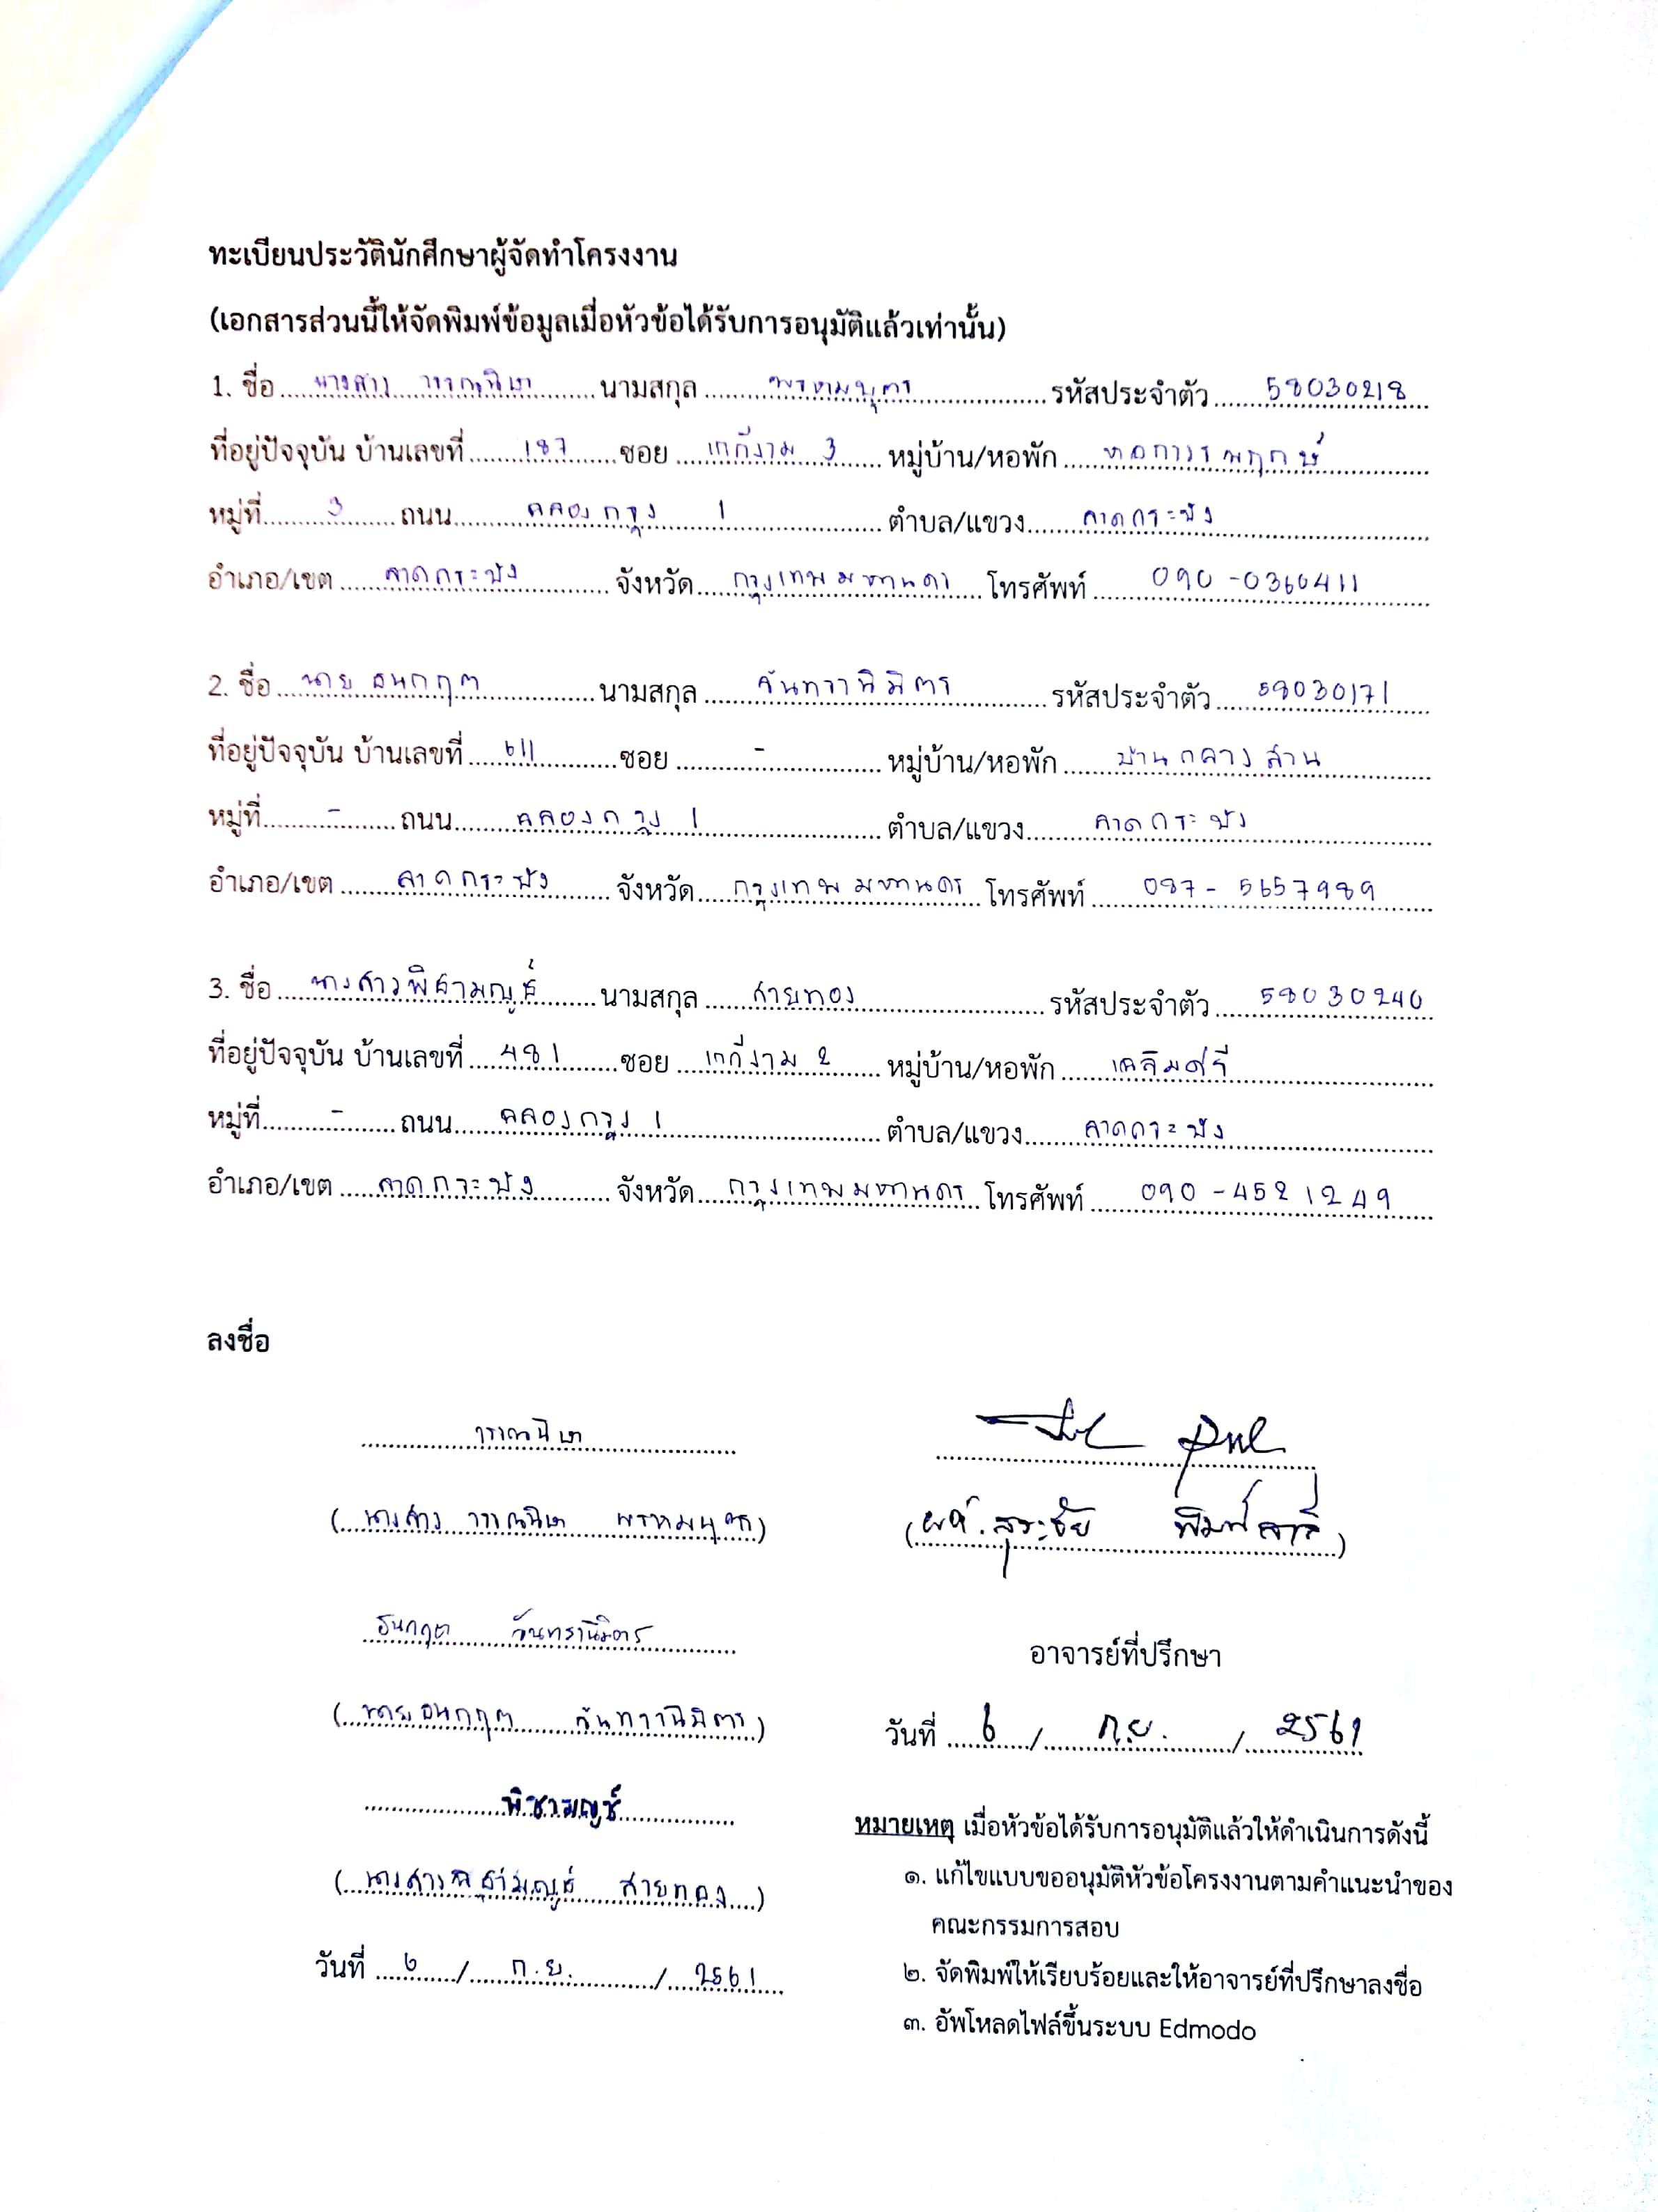 ทะเบียนประวัตินักศึกษาผู้จัดทำโครงงาน
(เอกสารส่วนนี้ให้จัดพิมพ์ข้อมูลเมื่อหัวข้อได้รับการอนุมัติแล้วเท่านั้น)
1. ชื่อ นางสาว วรรณนิษา นามสกุล พรหมบุตร รหัสประจำตัว 58030218
ที่อยู่ปัจจุบัน บ้านเลขที่ 187 ซอย เกกีงาม 3 หมู่บ้าน/หอพัก หอการะพฤกษ์
หมู่ที่ 3 ถนน ฉลองกรุง 1 ตำบล/แขวง ลาดกระบัง
อำเภอ/เขต ลาดกระบัง จังหวัด กรุงเทพมหานคร โทรศัพท์ 090-0360411
2. ชื่อ นาย ธนกฤต นามสกุล จันทรานิมิตร รหัสประจำตัว 58030171
ที่อยู่ปัจจุบัน บ้านเลขที่ 611 ซอย - หมู่บ้าน/หอพัก บ้านกลางสวน
หมู่ที่ - ถนน ฉลองกรุง 1 ตำบล/แขวง ลาดกระบัง
อำเภอ/เขต ลาดกระบัง จังหวัด กรุงเทพมหานคร โทรศัพท์ 087-5657989
3. ชื่อ นางสาวพิชามญชุ์ นามสกุล สายทอง รหัสประจำตัว 58030240
ที่อยู่ปัจจุบัน บ้านเลขที่ 481 ซอย เกกีงาม 2 หมู่บ้าน/หอพัก เฉลิมศรี
หมู่ที่ - ถนน ฉลองกรุง 1 ตำบล/แขวง ลาดกระบัง
อำเภอ/เขต ลาดกระบัง จังหวัด กรุงเทพมหานคร โทรศัพท์ 090-4521249
ลงชื่อ
วรรณนิษา
(นางสาว วรรณนิษา พรหมบุตร)
(ผศ. สุระชัย พิมพ์สาลี)
ธนกฤต จันทรานิมิตร
อาจารย์ที่ปรึกษา
(นายธนกฤต จันทรานิมิตร)
วันที่ 6 / ก.ย. / 2561
พิชามญชุ์
(นางสาวพิชามญชุ์ สายทอง)
วันที่ 6 / ก.ย. / 2561
หมายเหตุ เมื่อหัวข้อได้รับการอนุมัติแล้วให้ดำเนินการดังนี้
๑. แก้ไขแบบขออนุมัติหัวข้อโครงงานตามคำแนะนำของ
คณะกรรมการสอบ
๒. จัดพิมพ์ให้เรียบร้อยและให้อาจารย์ที่ปรึกษาลงชื่อ
๓. อัพโหลดไฟล์ขึ้นระบบ Edmodo